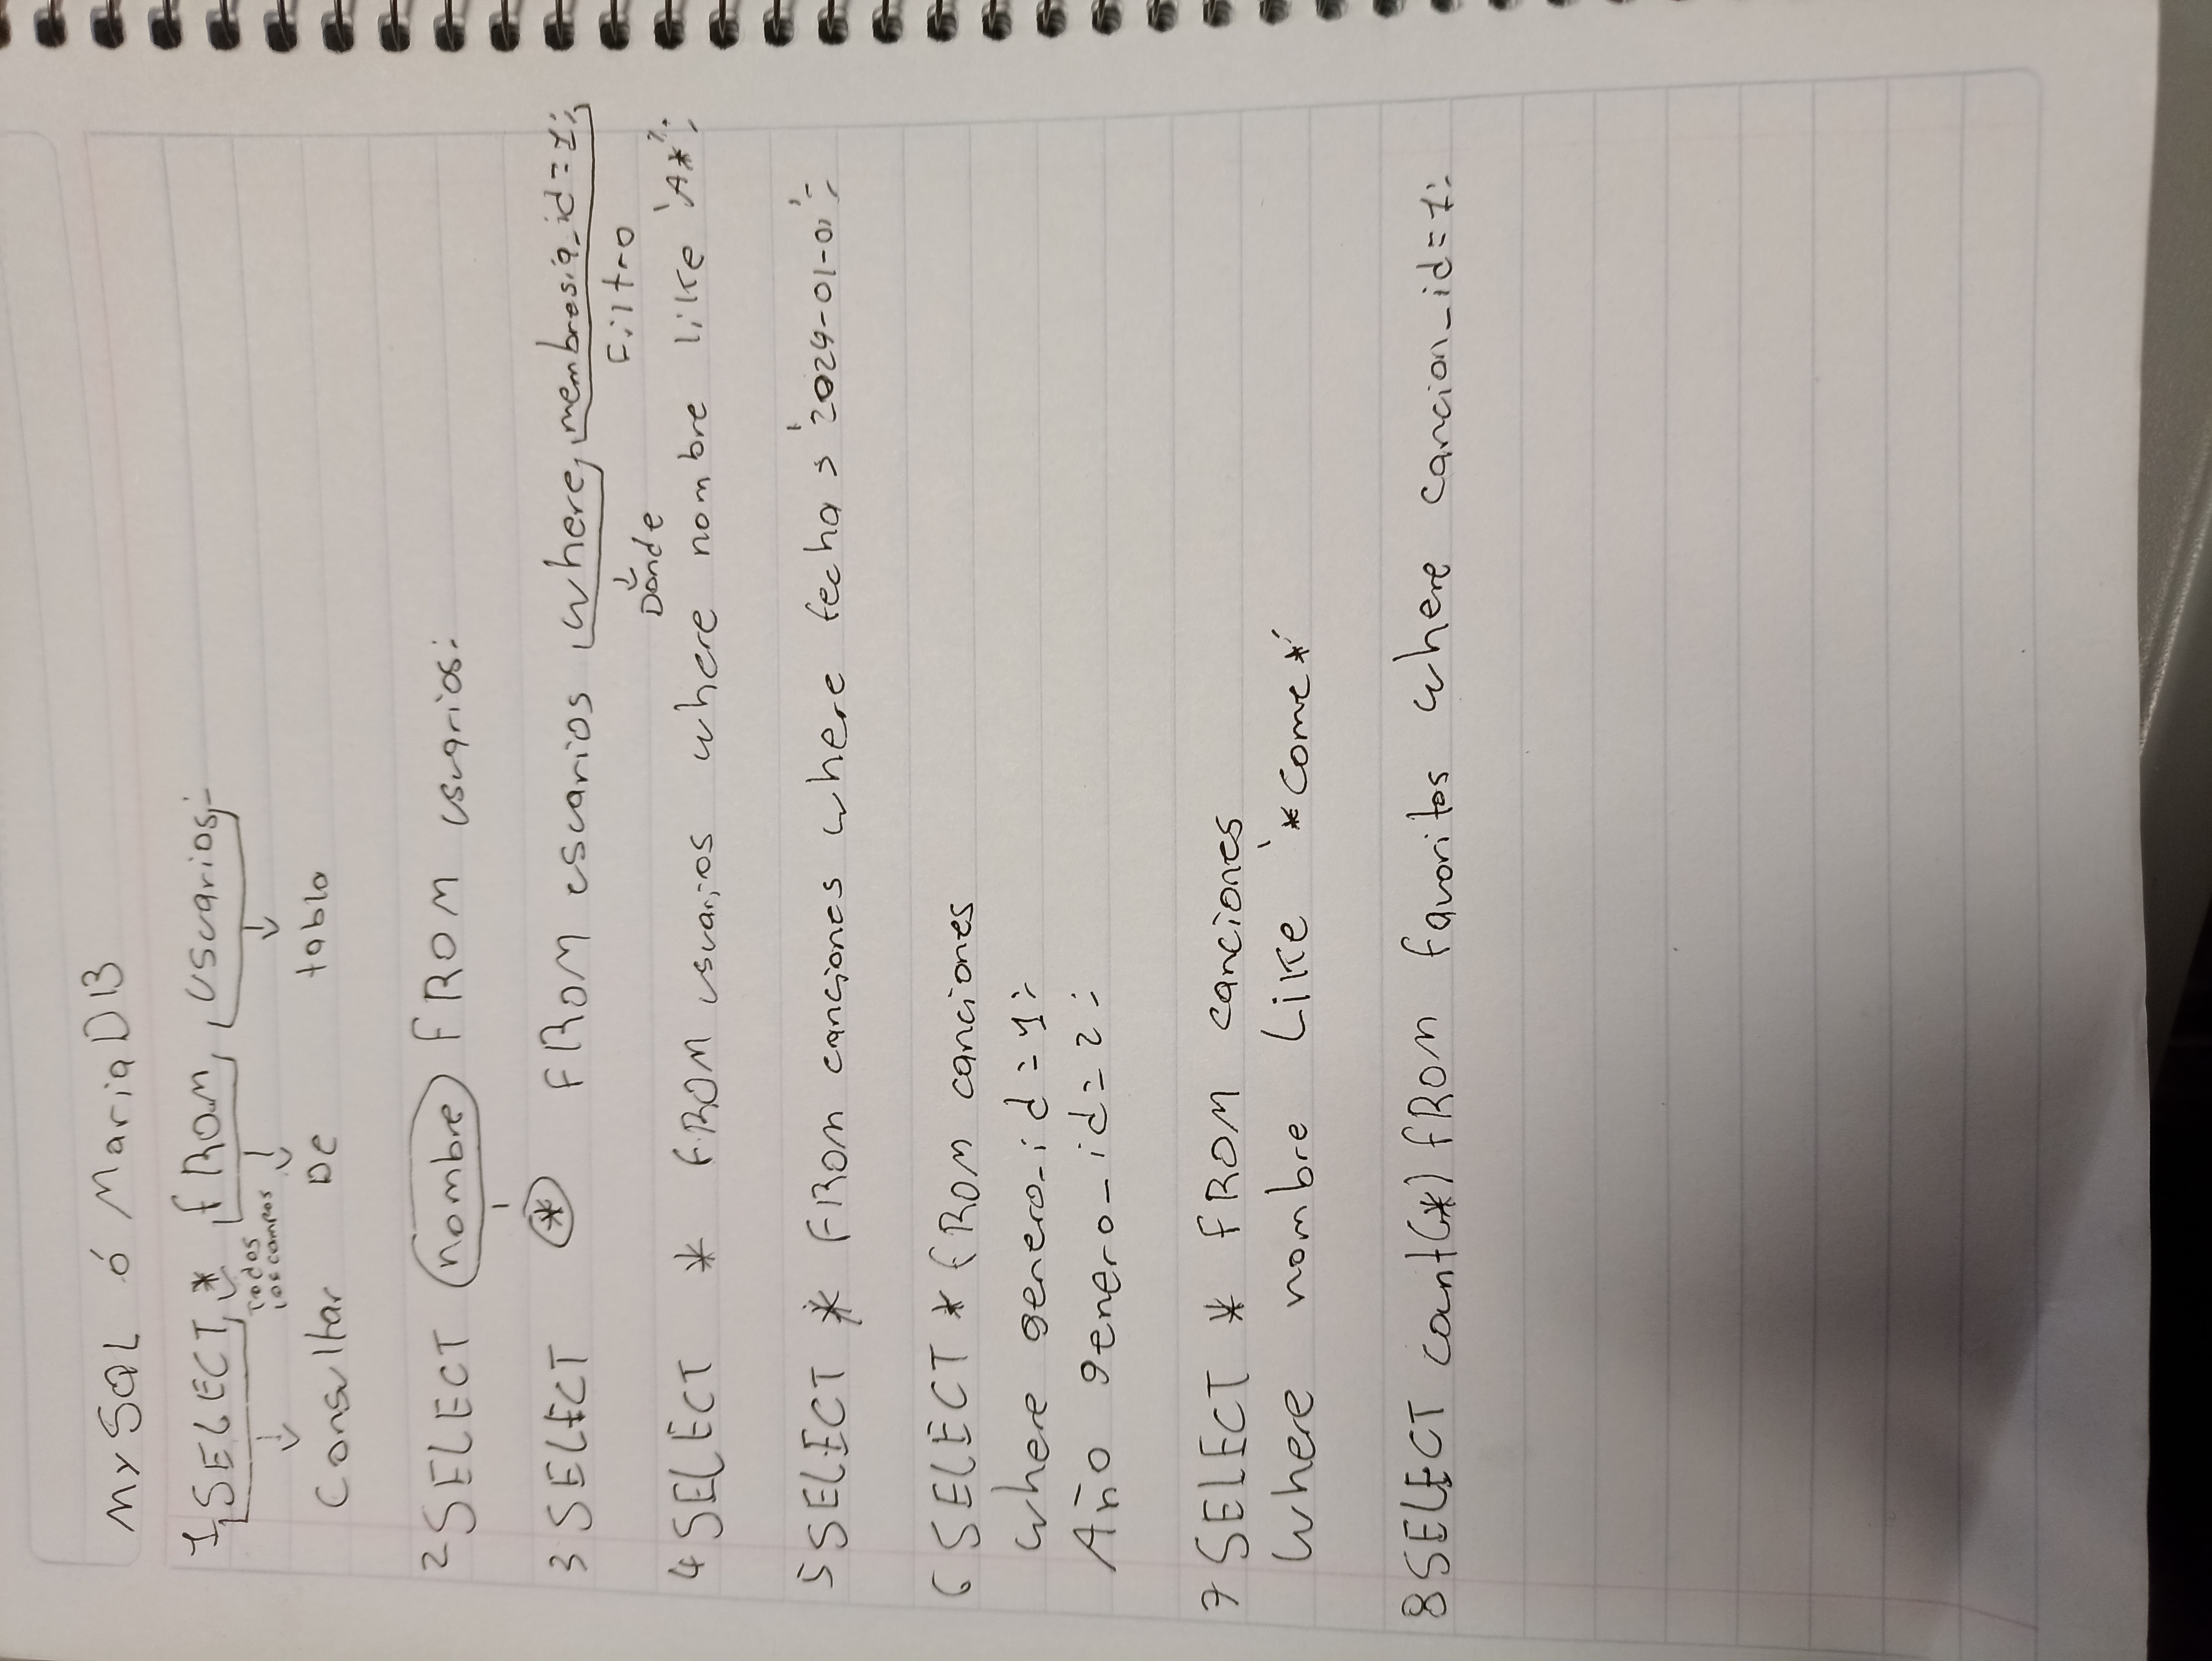 MySQL ó MariaDB
1 SELECT * FROM usuarios;
Todos
los campos
Consultar De tabla
2 SELECT nombre FROM usuarios;
3 SELECT * FROM usuarios where membresia_id = 1;
Filtro
Donde
4 SELECT * FROM usuarios where nombre like 'A*';
5 SELECT * FROM canciones where fecha > '2024-01-01';
6 SELECT * FROM canciones
where genero_id = 1;
Año genero_id = 2;
7 SELECT * FROM canciones
Where nombre Like '*come*'
8 SELECT count(*) FROM favoritos where cancion_id = 1;